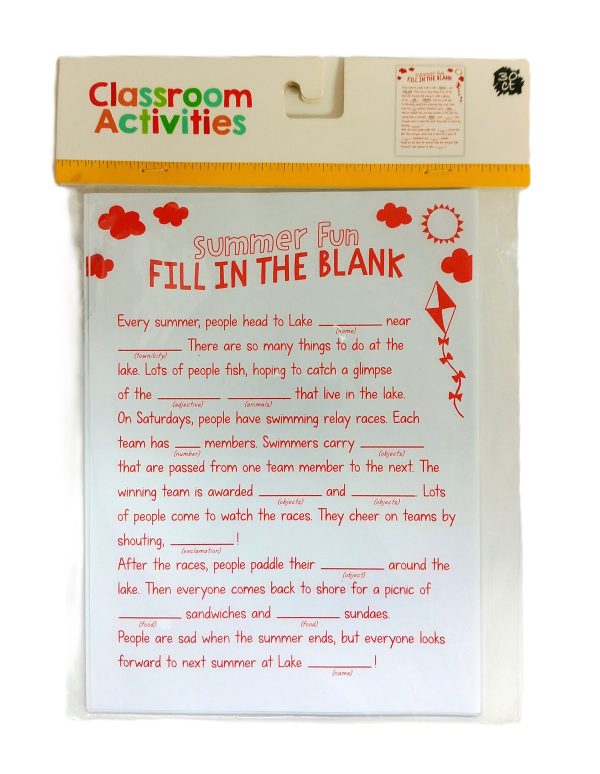 Classroom
Activities
30
ct
Summer Fun
FILL IN THE BLANK
Summer Fun
FILL IN THE BLANK
Every summer, people head to Lake ________ near
(name)
________. There are so many things to do at the
(town/city)
lake. Lots of people fish, hoping to catch a glimpse
of the ________ ________ that live in the lake.
(adjective) (animals)
On Saturdays, people have swimming relay races. Each
team has ____ members. Swimmers carry ________
(number) (objects)
that are passed from one team member to the next. The
winning team is awarded ________ and ________. Lots
(objects) (objects)
of people come to watch the races. They cheer on teams by
shouting, ________!
(exclamation)
After the races, people paddle their ________ around the
(object)
lake. Then everyone comes back to shore for a picnic of
________ sandwiches and ________ sundaes.
(food) (food)
People are sad when the summer ends, but everyone looks
forward to next summer at Lake ________!
(name)